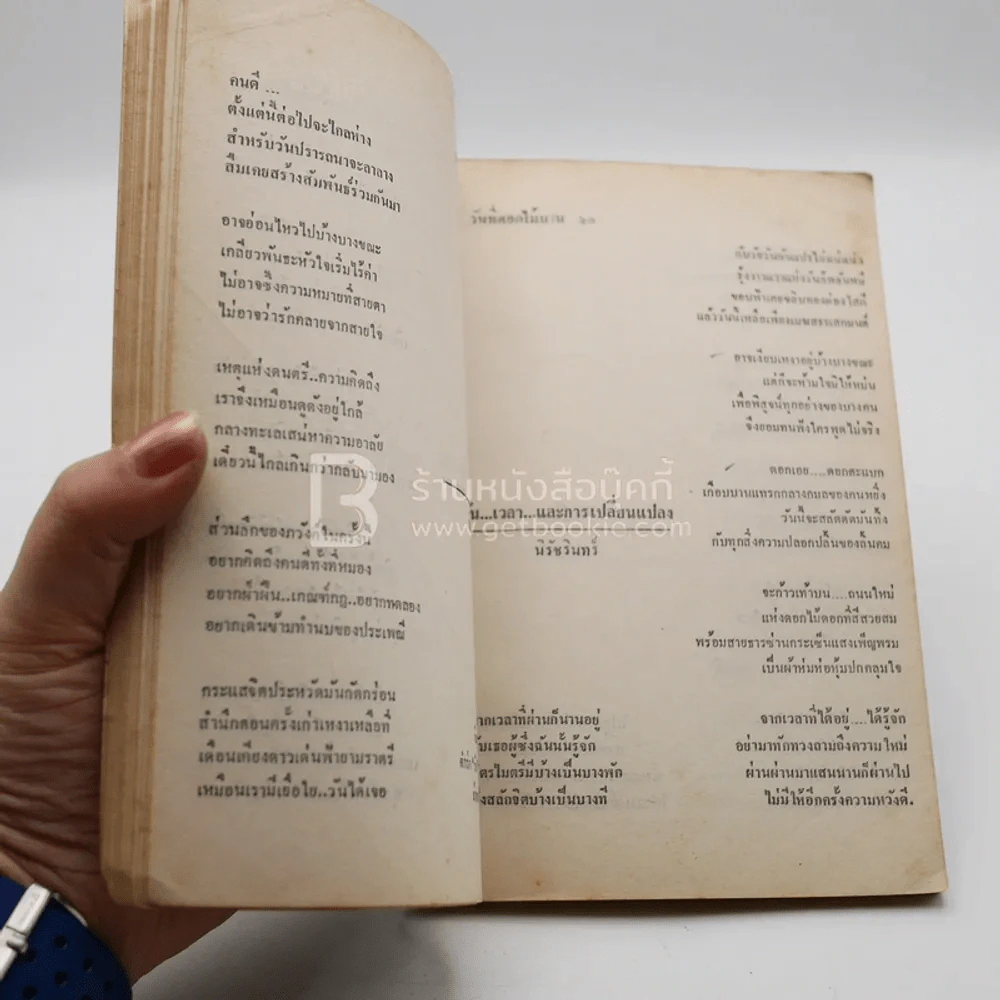 คนดี ...
ตั้งแต่นี้ต่อไปจะไกลห่าง
สำหรับวันปรารถนาจะลาลาง
ลืมเคยสร้างสัมพันธ์ร่วมกันมา
อาจอ่อนไหวไปบ้างบางขณะ
เกลียวพันธะหัวใจเริ่มไร้ค่า
ไม่อาจซึ้งความหมายที่สายตา
ไม่อาจว่ารักคลายจากสายใจ
เหตุแห่งดนตรี..ความคิดถึง
เราจึงเหมือนดูดั่งอยู่ใกล้
กลางทะเลเสน่หาความอาลัย
เดี๋ยวนี้ไกลเกินกว่ากลับมามอง
ส่วนลึกของภวังค์ในครั้งนี้
อยากคิดถึงคนดีทั้งที่หมอง
อยากฝ่าฝืน..เกณฑ์กฎ..อยากทดลอง
อยากเดินข้ามทำนบของประเพณี
กระแสจิตประหวัดมันกัดกร่อน
สำนึกตอนครั้งเก่าเหงาเหลือที่
เดือนเคียงดาวเด่นฟ้ายามราตรี
เหมือนเรามีเยื่อใย..วันได้เจอ
วันที่ดอกไม้บาน ๖๓
ขอบฟ้าเคยขลิบทองผ่องใสก็
แล้ววันนี้เหลือเพียง
อาจเงียบเหงาอยู่บ้างบางขณะ
แต่ก็จะห้ามใจมิให้หม่น
เพื่อพิสูจน์ทุกอย่างของบางคน
จึงยอมทนฟังใครพูดไม่จริง
ดอกเอย....ดอกตะแบก
เกือบบานแทรกกลางกมลของคนหยิ่ง
วันนี้จะสลัดตัดบันทิ้ง
กับทุกสิ่งความปลอกปลิ้นของลิ้นคม
จะก้าวเท้าบน....ถนนใหม่
แห่งดอกไม้ดอกที่สีสวยสม
พร้อมสายธารซ่านกระเซ็นแสงเพ็ญพรม
เป็นผ้าห่มห่อหุ้มปกคลุมใจ
...เวลา...และการเปลี่ยนแปลง
นิรัชรินทร์
ากเวลาที่ผ่านก็นานอยู่ จากเวลาที่ได้อยู่....ได้รู้จัก
ับเธอผู้ซึ่งฉันนั้นรู้จัก อย่ามาทักทวงถามถึงความใหม่
ตรไมตรีมีบ้างเป็นบางพัก ผ่านผ่านมาแสนนานก็ผ่านไป
งสลักจิตบ้างเป็นบางที ไม่มีให้อีกครั้งความหวังดี.
ร้านหนังสือบุ๊คกี้
www.getbookie.com